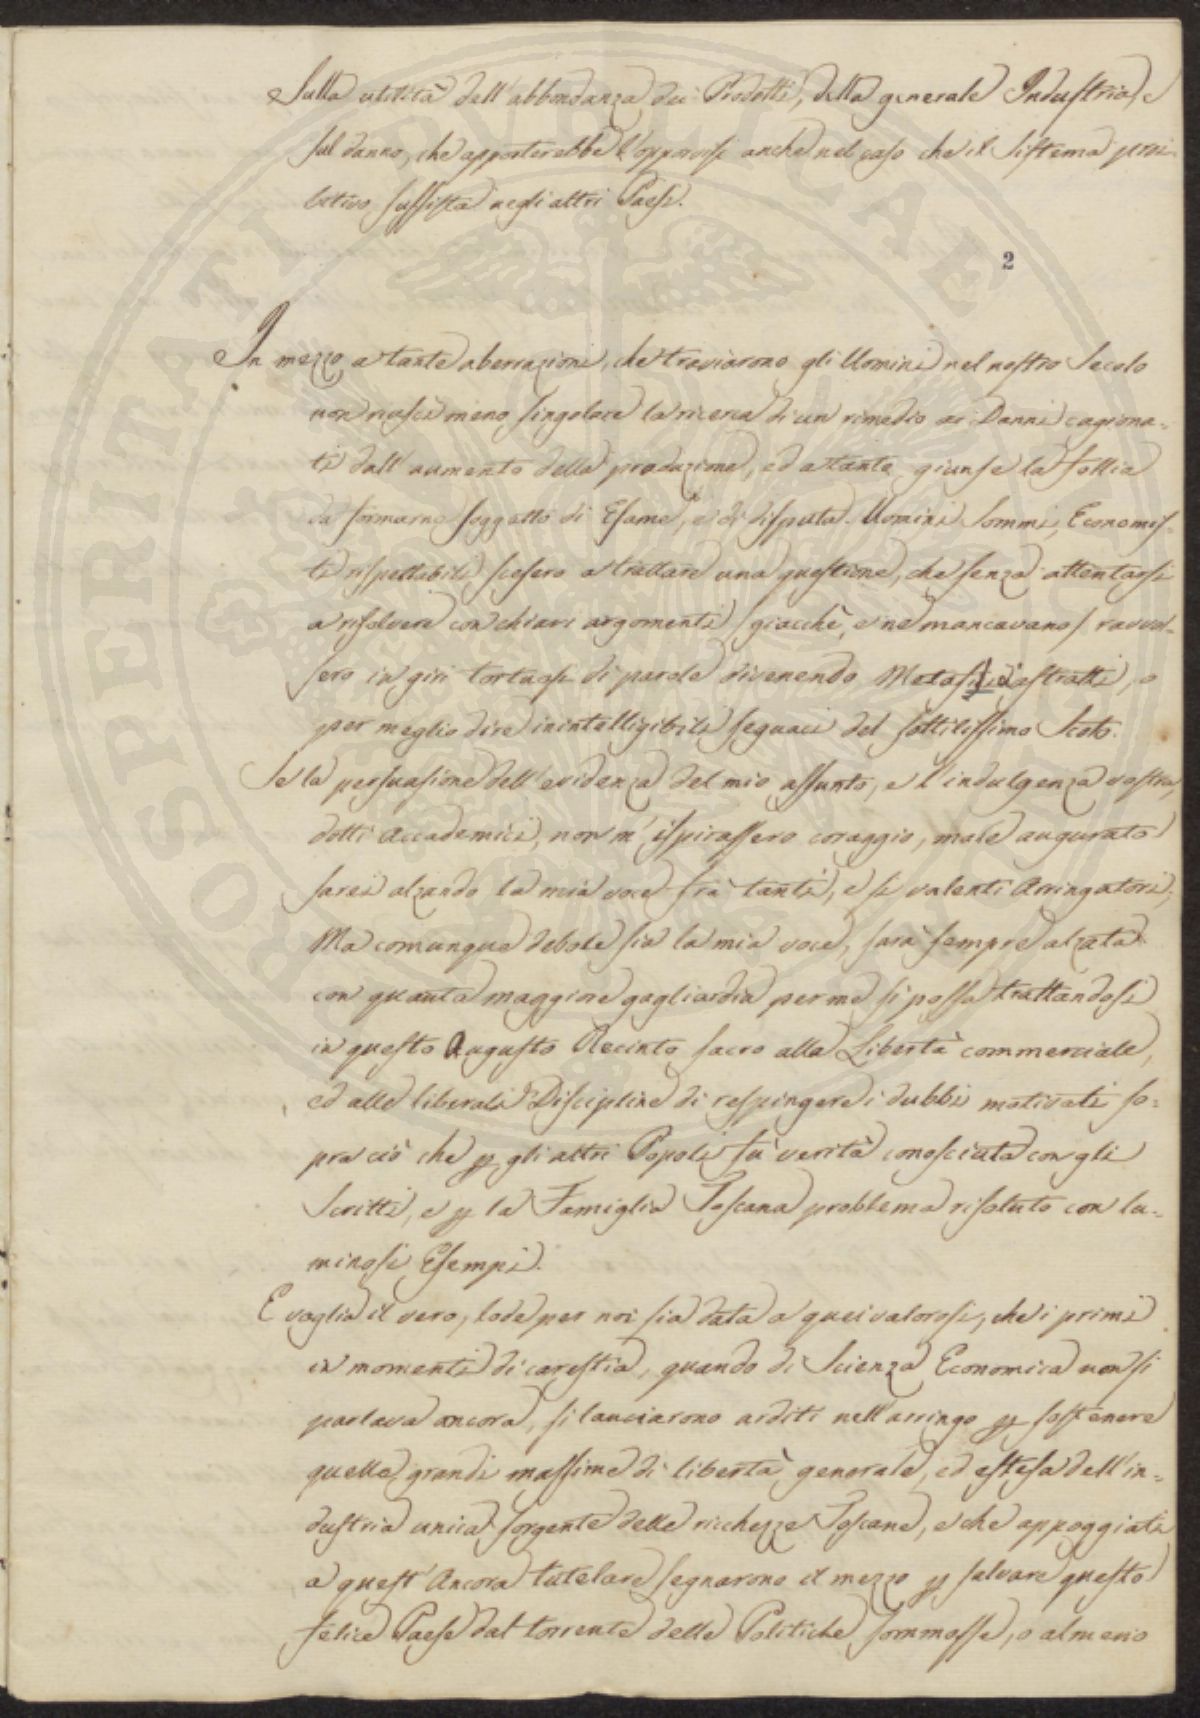 Sulla utilità dell'abbondanza dei Prodotti, della generale Industria, e
sul danno, che apporterebbe l'opporvisi anche nel caso che il Sistema proi-
bitivo sussista negli altri Paesi.
2
In mezzo a tante aberrazioni, che traviarono gli Uomini nel nostro Secolo
non riuscì meno singolare la ricerca di un rimedio ai Danni cagiona-
ti dall'aumento della produzione, ed a tanto giunse la follia
da formarne soggetto di Esame, e di disputa. Uomini Sommi, Economis-
ti rispettabili scesero a trattare una questione, che senza attentarsi
a risolvere con chiari argomenti (giacchè, e' ne mancavano) ravvol-
sero in giri tortuosi di parole divenendo Metafisici astratti, o
per meglio dire inintelligibili seguaci del sottilissimo Scoto.
Se la persuasione dell'evidenza del mio assunto, e l'indulgenza vostra,
dotti Accademici, non m'ispirassero coraggio, male augurato
sarei alzando la mia voce frà tanti, e sì valenti Arringatori;
Ma comunque debole sia la mia voce, sarà sempre alzata
con quanta maggiore gagliardia per me si possa trattandosi
in questo Augusto Recinto sacro alla Libertà commerciale,
ed alle liberali Discipline di respingere i dubbi motivati so-
pra ciò che p gli altri Popoli fù verità conosciuta con gli
Scritti, e p la Famiglia Toscana problema risoluto con lu-
minosi Esempi.
E vaglia il vero, lode per noi sia data a quei valorosi, che i primi
in momenti di carestia, quando di Scienza Economica non si
parlava ancora, si lanciarono arditi nell'arringo p sostenere
quelle grandi massime di libertà generale, ed estesa dell'in-
dustria unica sorgente delle ricchezze Toscane, e che appoggiati
a quest'Ancora tutelare segnarono il mezzo p salvare questo
felice Paese dal torrente delle Politiche sommosse, o almeno
PROSPERITATI PUBLICAE AUGENDAE